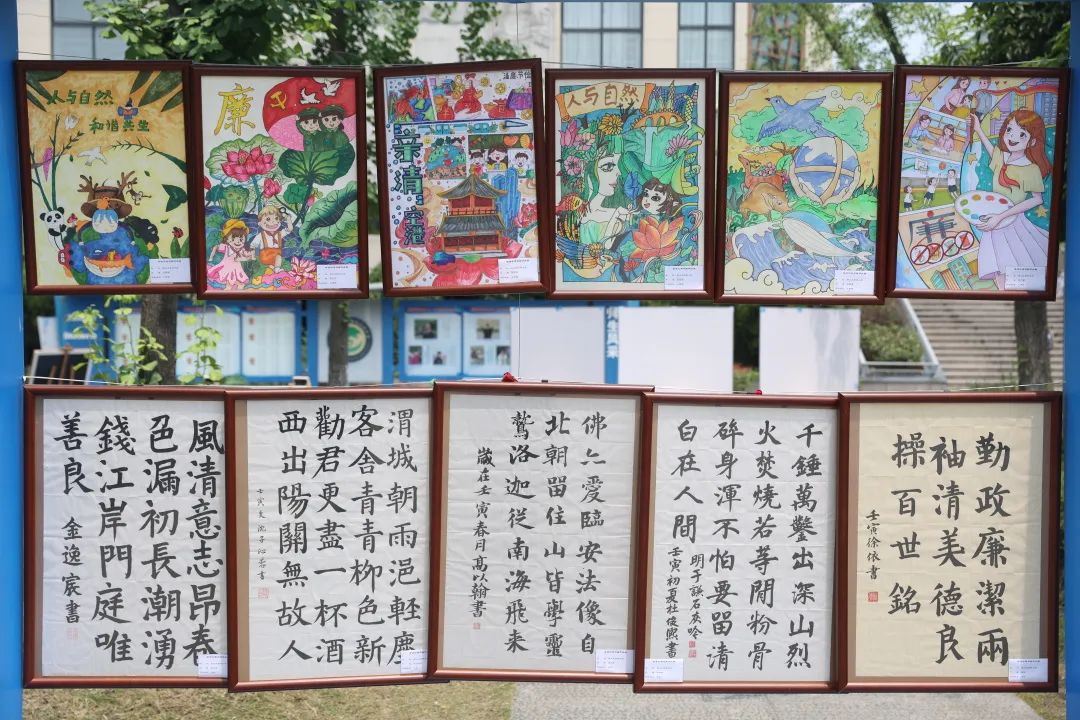 人与自然
和谐共生
廉
亲清空港
人与自然
生风采
風清意志昂春
色漏初長潮湧
錢江岸門庭唯
善良
金逸宸書
渭城朝雨浥輕塵
客舍青青柳色新
勸君更盡一杯酒
西出陽關無故人
佛亦愛臨安法像自
北朝留住山皆學靈
鷲洛迦従南海飛来
歲在壬寅春月高以翰書
千錘萬鑿出深山烈
火焚燒若等閒粉骨
碎身渾不怕要留清
白在人間
明于謙石灰吟
壬寅初夏杜俊熙書
勤政廉潔兩
袖清美德良
操百世銘
壬寅徐依書